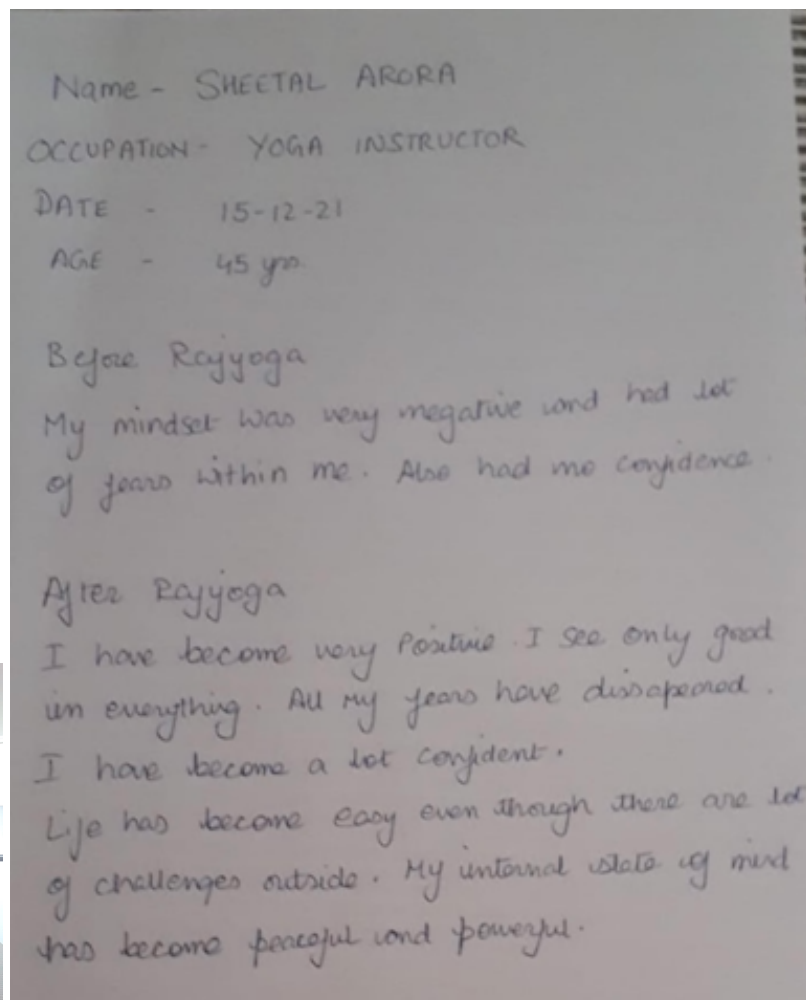 Name - SHEETAL ARORA
OCCUPATION - YOGA INSTRUCTOR
DATE - 15-12-21
AGE - 45 yrs.
Before Rajyoga
My mindset was very negative and had lot
of fears within me. Also had no confidence.
After Rajyoga
I have become very Positive. I see only good
in everything. All my fears have dissapeared.
I have become a lot confident.
Life has become easy even though there are lot
of challenges outside. My internal state of mind
has become peaceful and powerful.